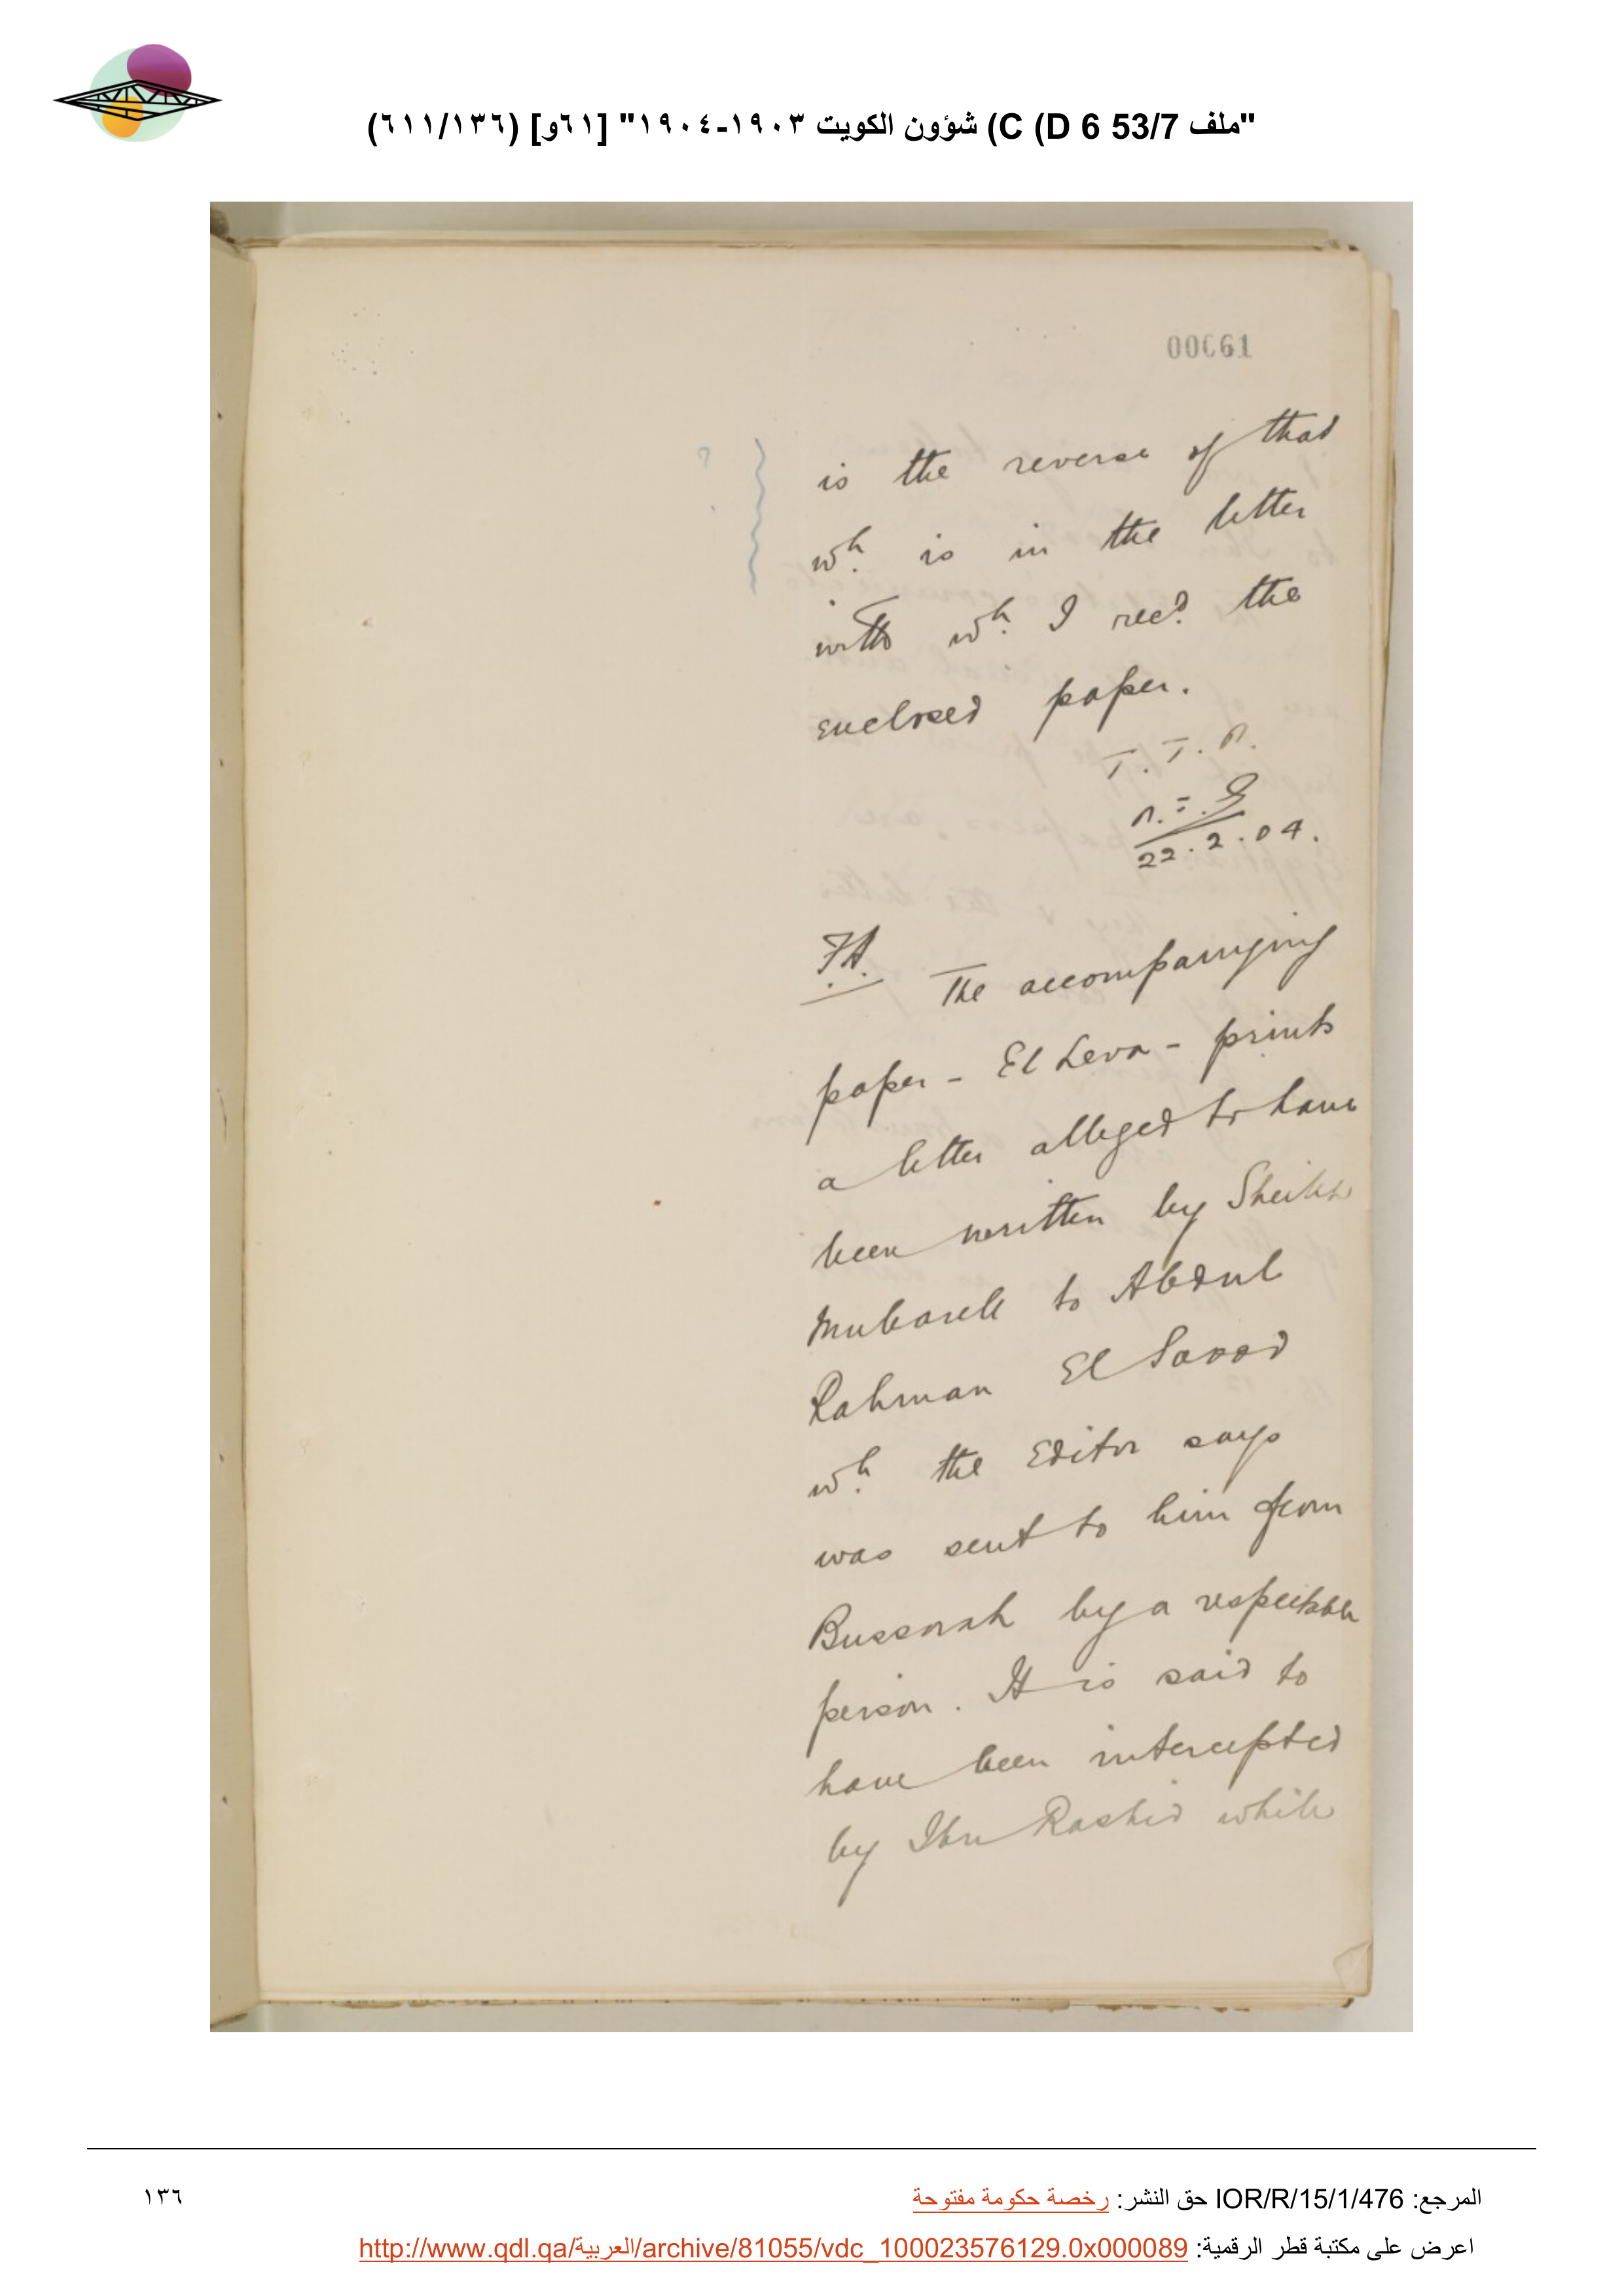 "ملف 53/7 D 6) C) شؤون الكويت ١٩٠٣-١٩٠٤" [٦١و] (٦١١/١٣٦)
00061
is the reverse of that
wh. is in the letter
with wh. I recd. the
enclosed paper.
T. T. R.
22.2.04.
FA.
The accompanying
paper - El Leva - prints
a letter alleged to have
been written by Sheikh
Mubarek to Abdul
Rahman El Saood
wh. the Editor says
was sent to him from
Bussorah by a respectable
person. It is said to
have been intercepted
by Ibn Rashid while
المرجع: IOR/R/15/1/476 حق النشر: رخصة حكومة مفتوحة
١٣٦
اعرض على مكتبة قطر الرقمية: http://www.qdl.qa/العربية/archive/81055/vdc_100023576129.0x000089